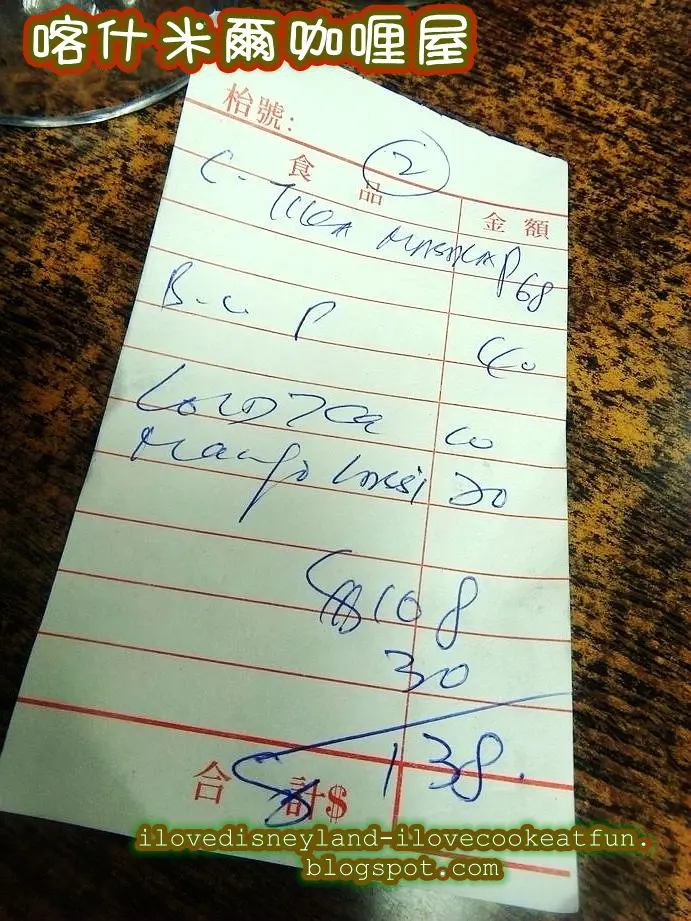 喀什米爾咖喱屋
枱號:
2
食品 金額
C- TIKKA MASALA P 68
B.C P 40
COLD TEA 10
Mango Lassi 20
108
30
138.
合計$
ilovedisneyland-ilovecookeatfun.
blogspot.com